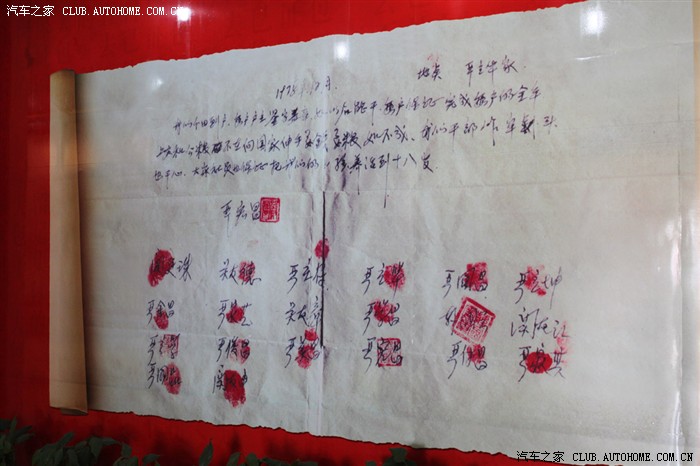 汽车之家 CLUB.AUTOHOME.COM.CN
1978.12月. 地点 严立华家
我们分田到户，每户户主签字盖章，如以后能干，每户保证完成每户的全年
上交和公粮，不在向国家伸手要钱要粮，如不成，我们干部作牢刹头
也干心，大家社员也保证把我们的小孩养活到十八岁
严宏昌
珠 关友德 严立符 严立华 严国昌 严立坤
严金昌 严家芝 关友章 严昌 关友江
严 严俊昌 严昌 严宏昌 严付昌 严家其
严国品 关友申
汽车之家 CLUB.AUTOHOME.COM.CN